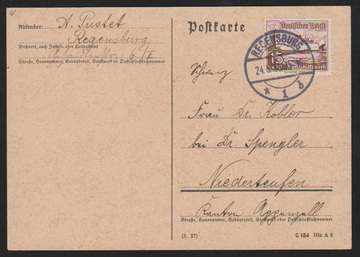 Absender: A. Pustet
Regensburg
Wohnort, auch Zustell- oder Leitpostamt
6/II
Straße, Hausnummer, Gebäudeteil, Stockwerk od. Postschließfachnummer
Postkarte
Deutsches Reich
15
REGENSBURG
24.
* 1 b
Schweiz
Frau Dr. Kobler
bei Dr. Spengler
Niederteufen
Kanton Appenzell
Straße, Hausnummer, Gebäudeteil, Stockwerk oder Postschließfachnummer
C 154 Din A 6